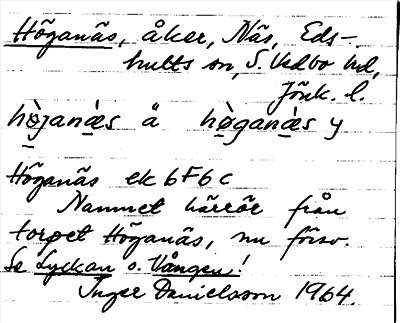 Höganäs, åker, Näs, Eds-
hults sn, S. Vedbo hd,
Jönk. l.
hø̀janä̀s ä hø̀ganä̀s y
Höganäs ek 6F6c
Namnet härrör från
torpet Höganäs, nu försv.
Se Lyckan o. Vången!
Inger Danielsson 1964.